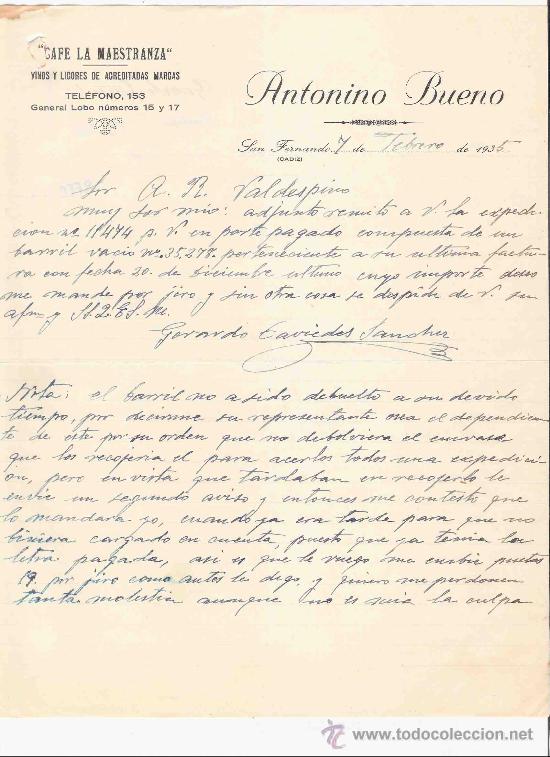 "CAFE LA MAESTRANZA"
VINOS Y LICORES DE ACREDITADAS MARCAS
TELÉFONO, 153
General Lobo números 15 y 17
Antonino Bueno
San Fernando, 7 de Febrero de 1935
(CADIZ)
Snr A. R. Valdespino
muy Snr mio: adjunto remito a V. la expedi-
cion nº 11474 p. V. en porte pagado compuesta de un
barril vacio nº 35.278. perteneciente a su ultima factu-
ra con fecha 20. de diciembre ultimo cuyo importe deseo
me mande por jiro y sin otra cosa se despide de V. su
afmo y
Gerardo Caviedes Sanchez
Nota: el barril no a sido debuelto a su devido
tiempo, por decirme su representante osea el dependien-
te de este por su orden que no debolviera el envase
que los recoferia el para acerlos todos una expedici-
ón, pero en vista que tardaban en recoferlo le
envie un segundo aviso y entonces me contesto que
lo mandara yo, cuando ya era tarde para que no
biniera cargado en cuenta, puesto que ya tenia la
letra pagada, asi es que le ruego me embie
19. por jiro como autos le digo, y quiero me perdonen
tanta molestia aunque no es mia la culpa
todocoleccion.net